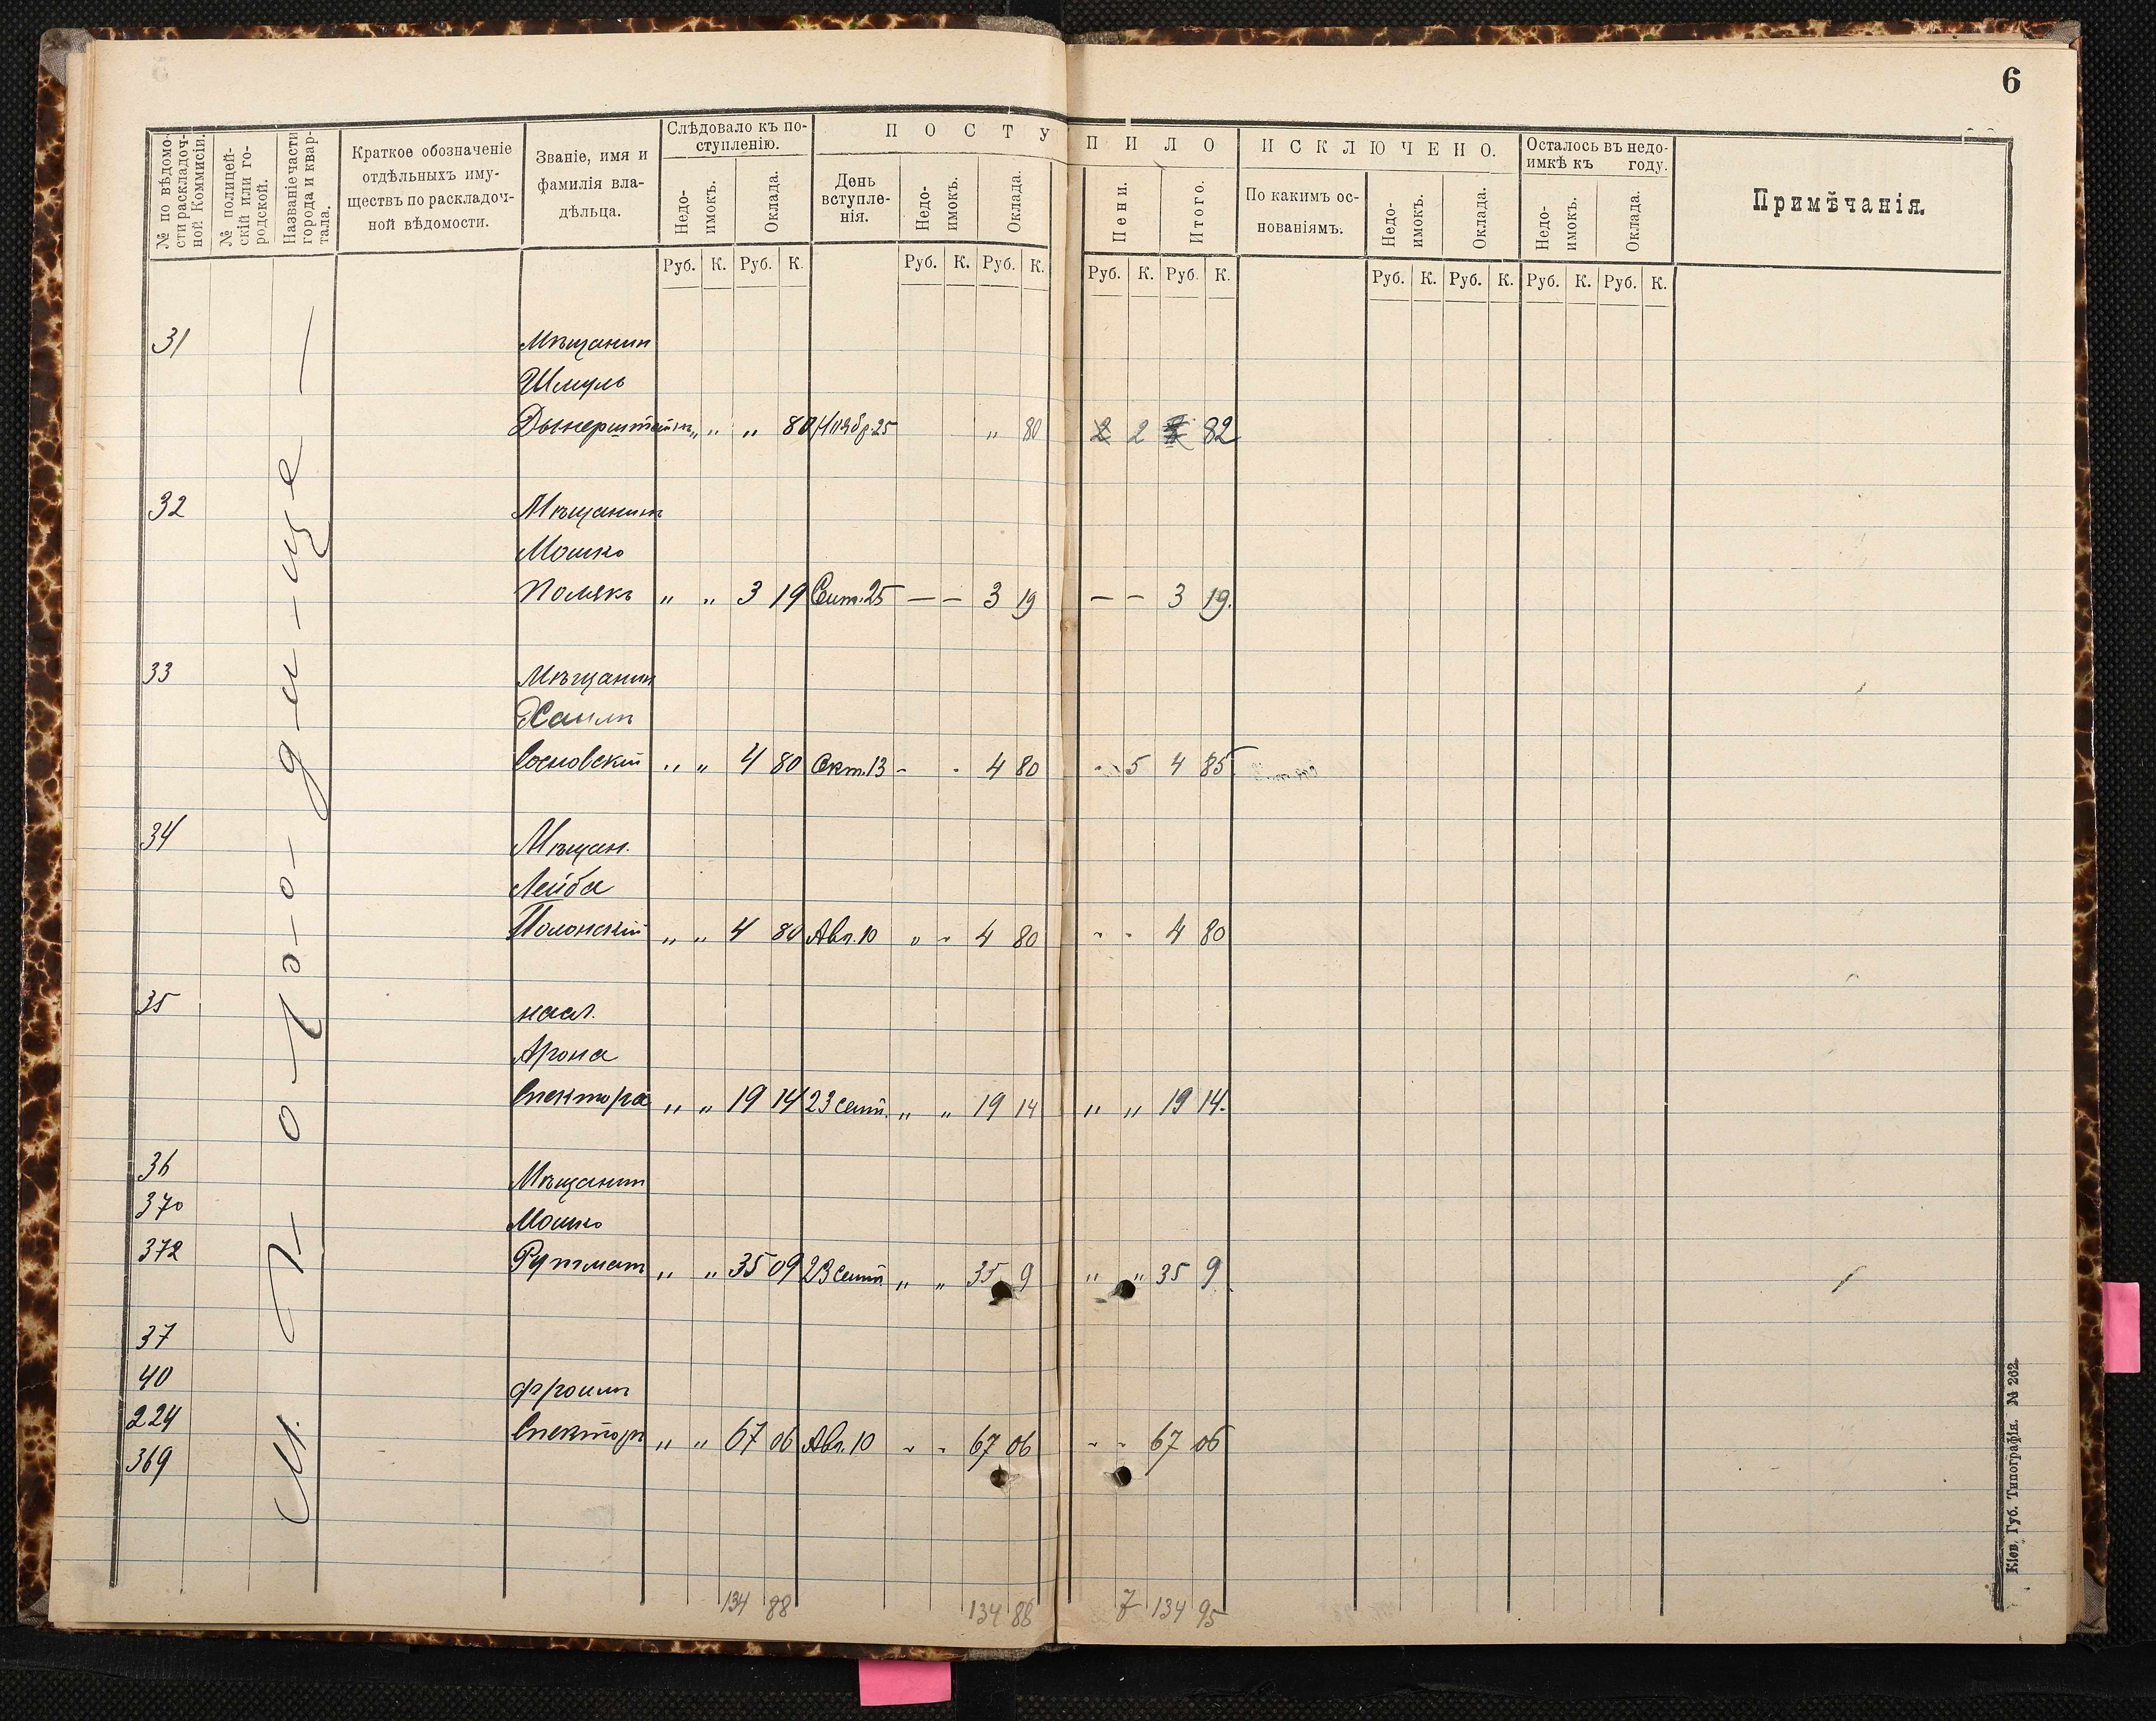 6
№ по вѣдомо-
сти раскладоч-
ной Коммисіи.
№ полицей-
скій или го-
родской.
Названіе части
города и квар-
тала.
Краткое обозначеніе
отдѣльныхъ иму-
ществъ по раскладоч-
ной вѣдомости.
Званіе, имя и
фамилія вла-
дѣльца.
Слѣдовало къ по-
ступленію.
Недо-
имокъ.
Оклада.
П О С Т У П И Л О
День
вступле-
нія.
Недо-
имокъ.
Оклада.
Пени.
Итого.
И С К Л Ю Ч Е Н О.
По какимъ ос-
нованіямъ.
Недо-
имокъ.
Оклада.
Осталось въ недо-
имкѣ къ году.
Недо-
имокъ.
Оклада.
Примѣчанія.
Руб. К. Руб. К. Руб. К. Руб. К. Руб. К. Руб. К. Руб. К. Руб. К. Руб. К. Руб. К.
М. Городище
31 Мѣщанин
Шмуль
Дынерштейнъ „ „ „ 80 Ноябр. 25 „ 80 2 82
32 Мѣщанинъ
Мошко
Полякъ „ „ 3 19 Сент. 25 — — 3 19 — — 3 19.
33 Мѣщанин
Хаимъ
Сосновскій „ „ 4 80 Окт. 13 - - 4 80 - 5 4 85
34 Мѣщан.
Лейба
Полонскій „ „ 4 80 Авг. 10 „ „ 4 80 - - 4 80
35 насл.
Арона
Спектора „ „ 19 14 23 сент. „ „ 19 14 „ „ 19 14.
36 Мѣщанин
370 Мошко
372 Рутманъ „ „ 35 09 23 сент. „ „ 35 9 „ „ 35 9
37
40 Фроимъ
224 Спекторъ „ „ 67 06 Авг. 10 - - 67 06 - - 67 06
369
134 88 134 88 7 134 95
Кіев. Губ. Типографія. № 262.